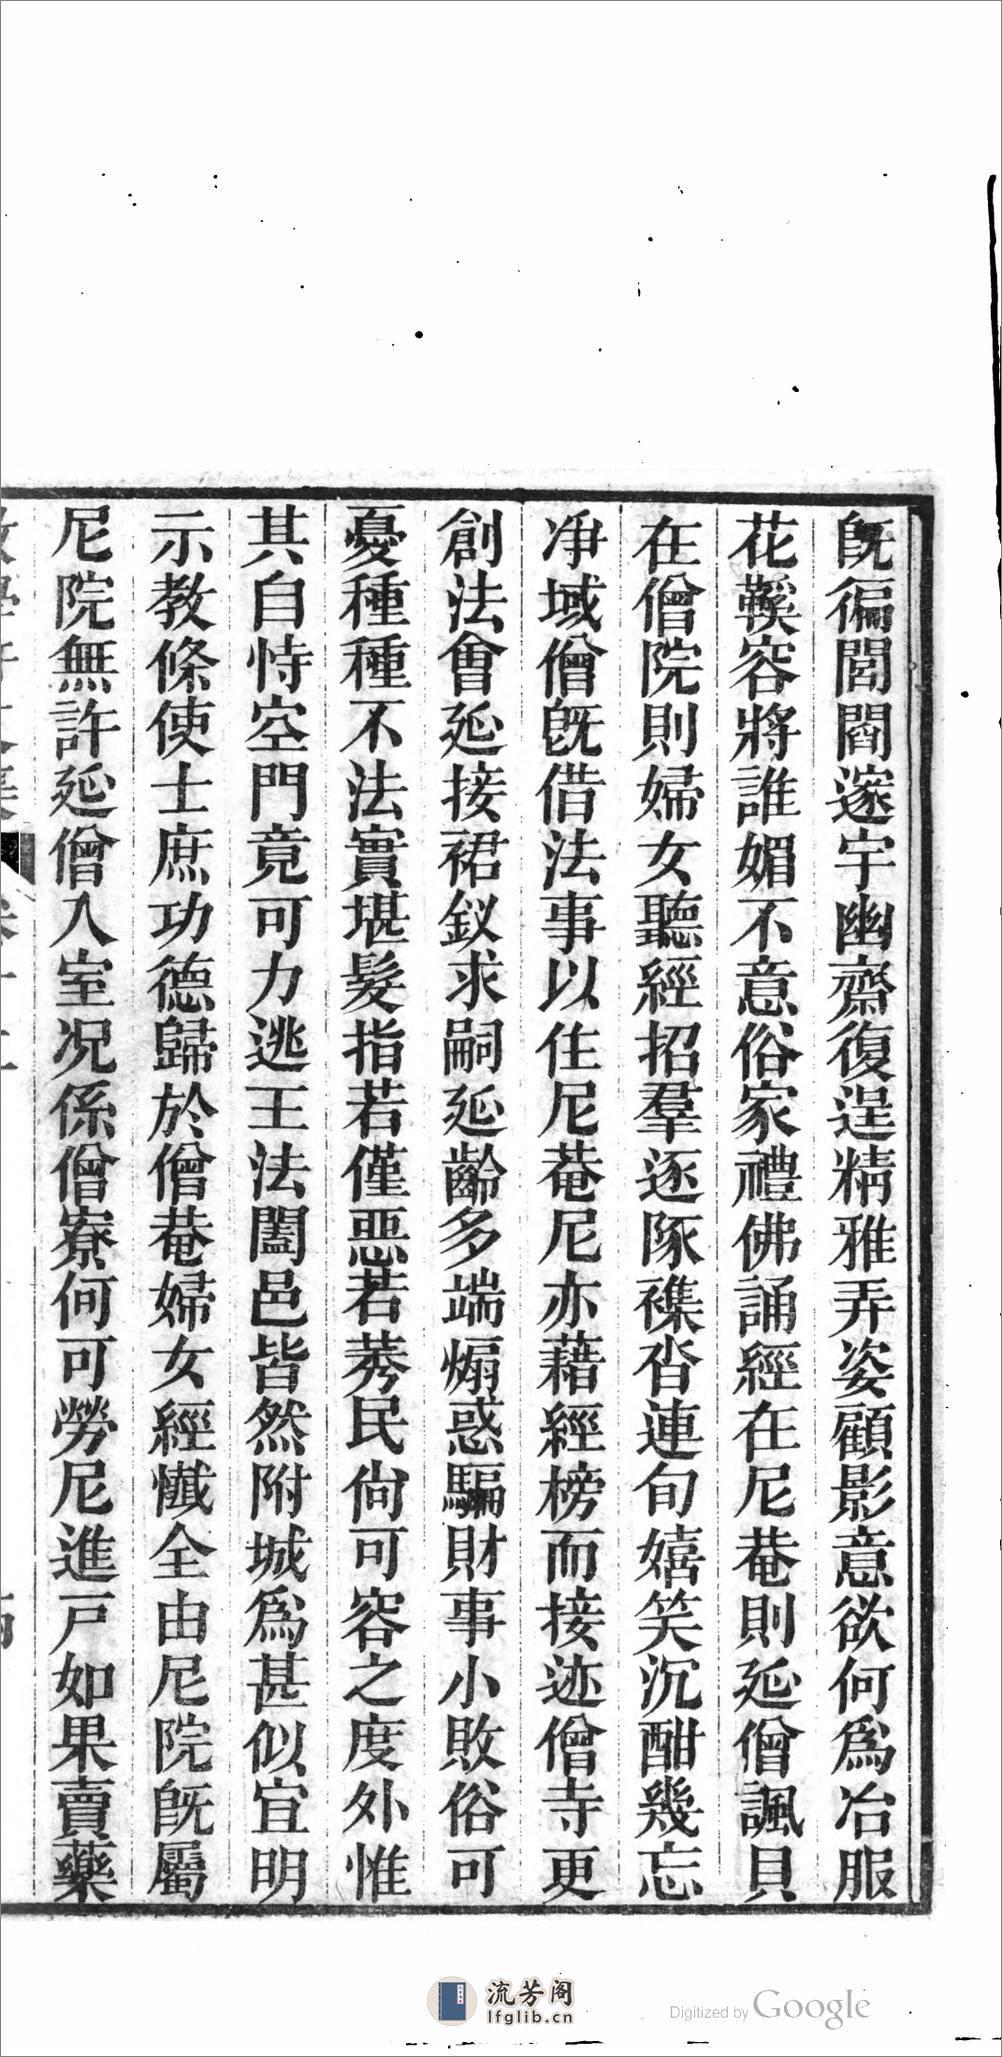 既徧閭閻邃宇幽齋復逞精雅弄姿顧影意欲何爲冶服
花鞵容將誰媚不意俗家禮佛誦經在尼菴則延僧諷貝
在僧院則婦女聽經招羣逐隊襍沓連旬嬉笑沉酣幾忘
凈域僧既借法事以住尼菴尼亦藉經榜而接迹僧寺更
創法會延接裙釵求嗣延齡多端煽惑騙財事小敗俗可
憂種種不法實堪髮指若僅惡若莠民尙可容之度外惟
其自恃空門竟可力逃王法闔邑皆然附城爲甚似宜明
示教條使士庶功德歸於僧菴婦女經懺全由尼院既屬
尼院無許延僧入室况係僧寮何可勞尼進戸如果賣藥
流芳阁
lfglib.cn
Digitized by Google